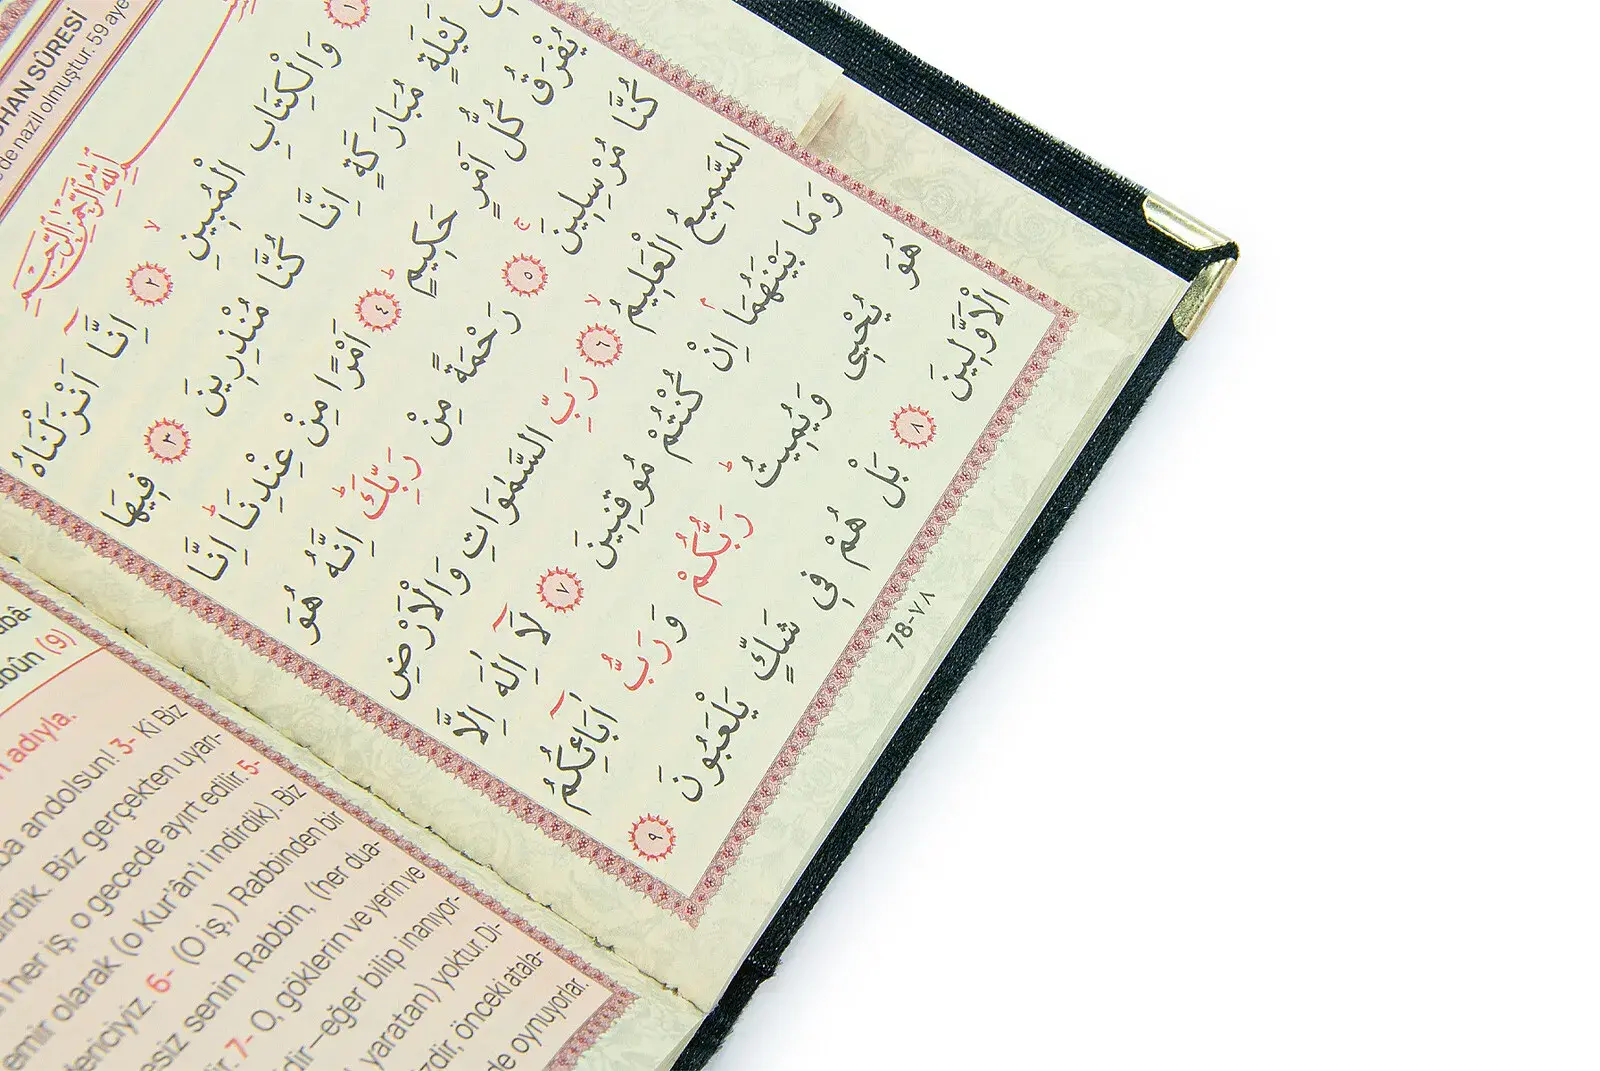 HAN SÛRESİ
de nazil olmuştur. 59 aye
بِسْمِ اللّٰهِ الرَّحْمٰنِ الرَّحِيمِ
١ وَالْكِتَابِ الْمُبِينِۙ ٢ اِنَّٓا اَنْزَلْنَاهُ
لَيْلَةٍ مُبَارَكَةٍ اِنَّا كُنَّا مُنْذِرِينَ ٣ فِيهَا
يُفْرَقُ كُلُّ اَمْرٍ حَكِيمٍۜ ٤ اَمْرًا مِنْ عِنْدِنَاۜ اِنَّا
كُنَّا مُرْسِلِينَۚ ٥ رَحْمَةً مِنْ رَبِّكَۜ اِنَّهُ هُوَ
السَّمِيعُ الْعَلِيمُۙ ٦ رَبِّ السَّمٰوَاتِ وَالْاَرْضِ
وَمَا بَيْنَهُمَاۢ اِنْ كُنْتُمْ مُوقِنِينَ ٧ لَٓا اِلٰهَ اِلَّا
هُوَ يُحْيِى وَيُمِيتُۜ رَبُّكُمْ وَرَبُّ اٰبَٓائِكُمُ
الْاَوَّلِينَ ٨ بَلْ هُمْ فِى شَكٍّ يَلْعَبُونَ ٩
78-٧٨
abâ-
abûn (9)
adıyla.
andolsun! 3- Ki Biz
dirdik. Biz gerçekten uyarı-
her iş, o gecede ayırt edilir. 5-
emir olarak (o Kur'ân'ı indirdik). Biz
dericiyiz. 6- (O iş,) Rabbinden bir
esiz senin Rabbin, (her dua-
ir. 7- O, göklerin ve yerin ve
dir–eğer bilip inanıyor-
yaratan) yoktur. Di-
izdir, önceki atala-
de oynuyorlar.